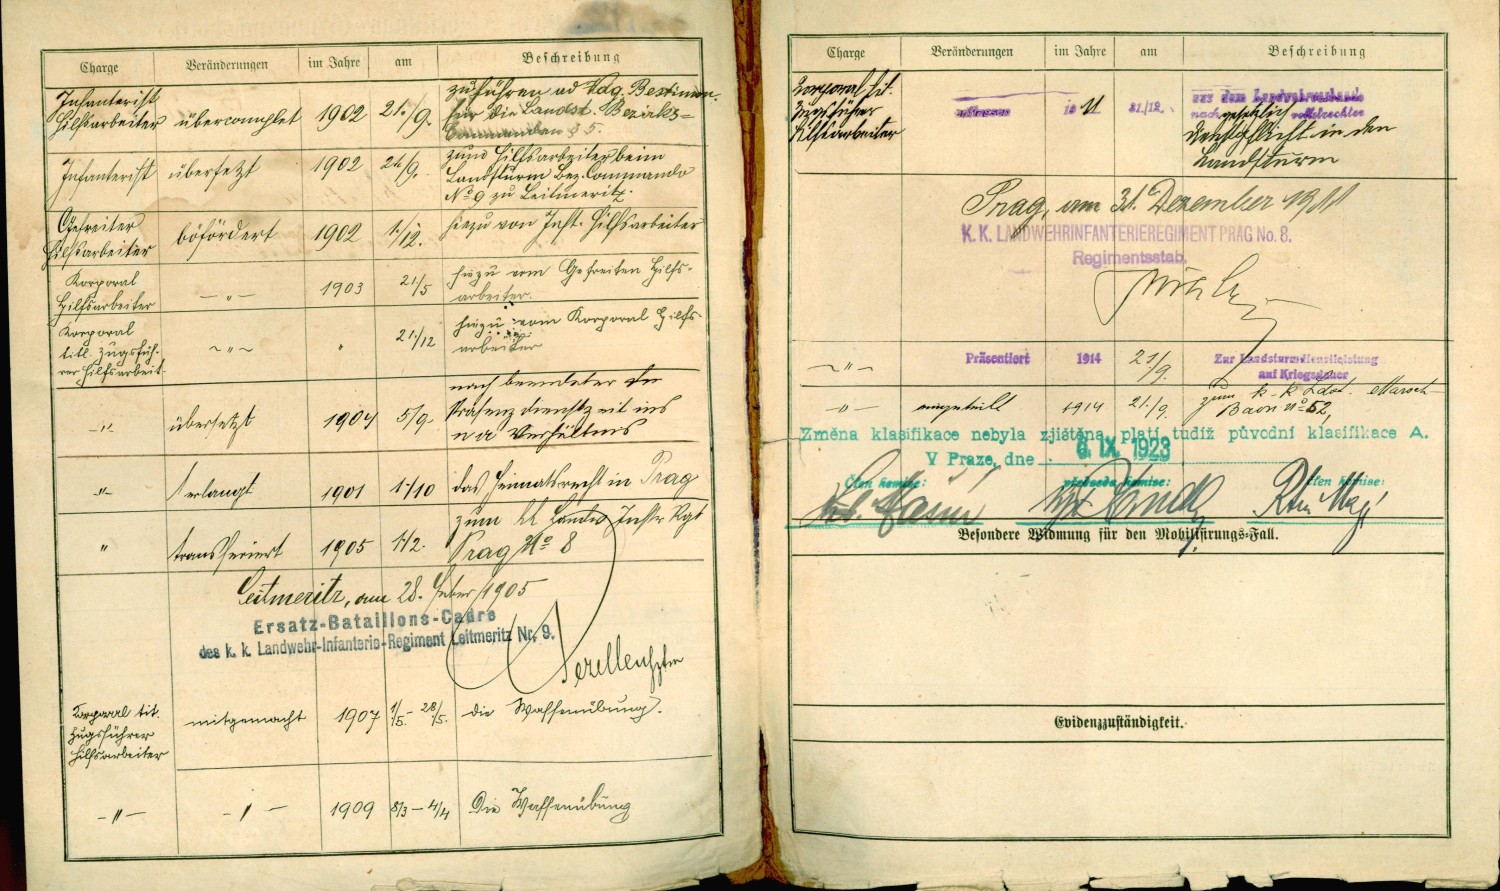 Charge Veränderungen im Jahre am Beschreibung
Infanterist
Hilfsarbeiter übercomplet 1902 21./9.
zu führen ad Vdg. Bestimm.
für die Landst. Bezirks=
Commanden § 5.
Infanterist übersetzt 1902 21/9.
zum Hilfsarbeiter beim
Landsturm Bez. Commando
No 9 zu Leitmeritz.
Gefreiter
Hilfsarbeiter böfördert 1902 1./12.
hiezu von Inft. Hilfsarbeiter
Korporal
Hilfsarbeiter — " — 1903 21/5
hiezu vom Gefreiten Hilfs-
arbeiter.
Korporal
titl. Zugsfüh-
rer Hilfsarbeit. ~ " ~ " 21/12
hiezu vom Korporal Hilfs-
arbeiter
-"- übersetzt 1904 5/9.
nach beendeter
Präsenzdienstzeit ins
n a Verhältnis
-"- erlangt 1901 1/10 das Heimatsrecht in Prag
" transferiert 1905 1/2.
zum kk Landw Inftr Rgt
Prag No 8
Leitmeritz, am 28. Feber 1905
Ersatz-Bataillons-Cadre
des k. k. Landwehr-Infanterie-Regiment Leitmeritz Nr. 9.
Korporal tit.
Zugsführer
Hilfsarbeiter mitgemacht 1907 1/5. - 28/5. die Waffenübung.
- " - - " - 1909 8/3 — 4/4 Die Waffenübung
Charge Veränderungen im Jahre am Beschreibung
Korporal tit.
Zugsführer
Hilfsarbeiter
19 11 31./12.
aus dem Landwehrverbande
nach gesetzlich vollstreckter
Dienstpflicht in den
Landsturm
Prag, am 31. Dezember 1911
K. K. LANDWEHRINFANTERIEREGIMENT PRAG No. 8.
Regimentsstab.
~ " ~ Präsentiert 1914 21/9.
Zur Landsturmdienstleistung
auf Kriegsdauer
-"- eingeteilt 1914 21./9.
zum k. k. Ldst. Marsch
Baon No 52,
Změna klasifikace nebyla zjištěna, platí tudíž původní klasifikace A.
V Praze, dne 6. IX. 1923
Člen komise: předseda komise: Člen komise:
Besondere Widmung für den Mobilisirungs-Fall.
Evidenzzuständigkeit.